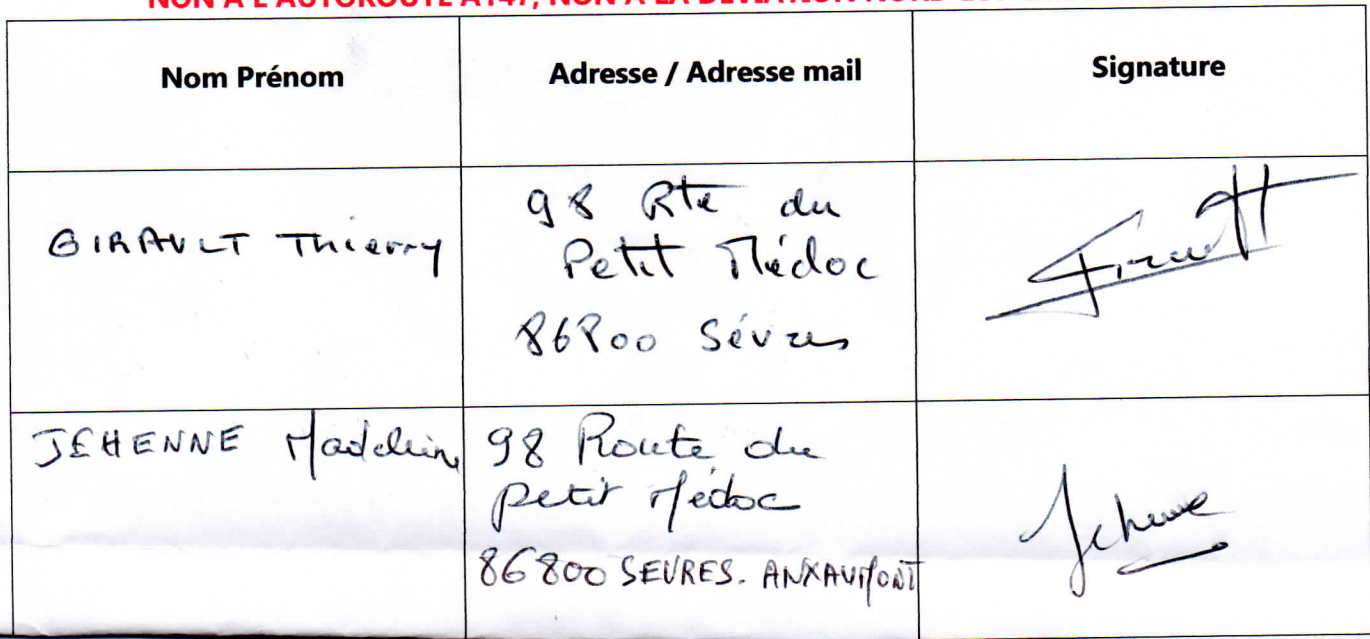 NON A L'AUTOROUTE A147, NON A LA DEVIATION NORD-
Nom Prénom
Adresse / Adresse mail
Signature
GIRAULT Thierry
98 Rte du
Petit Médoc
86800 Sèvres
Girault
JEHENNE Madeleine
98 Route du
petit Médoc
86800 SEVRES. ANXAUMONT
Jehenne